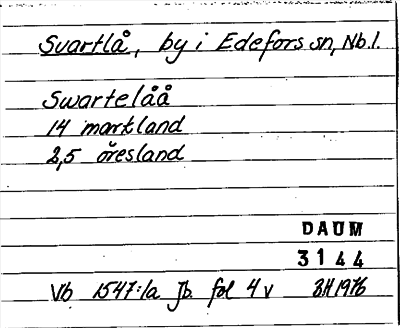 Svartlå, by i Edefors sn, Nb.l.
Swartelåå
14 markland
2,5 öresland
DAUM
3144
Vb 1547:1a Jb. fol 4 v BH 1976